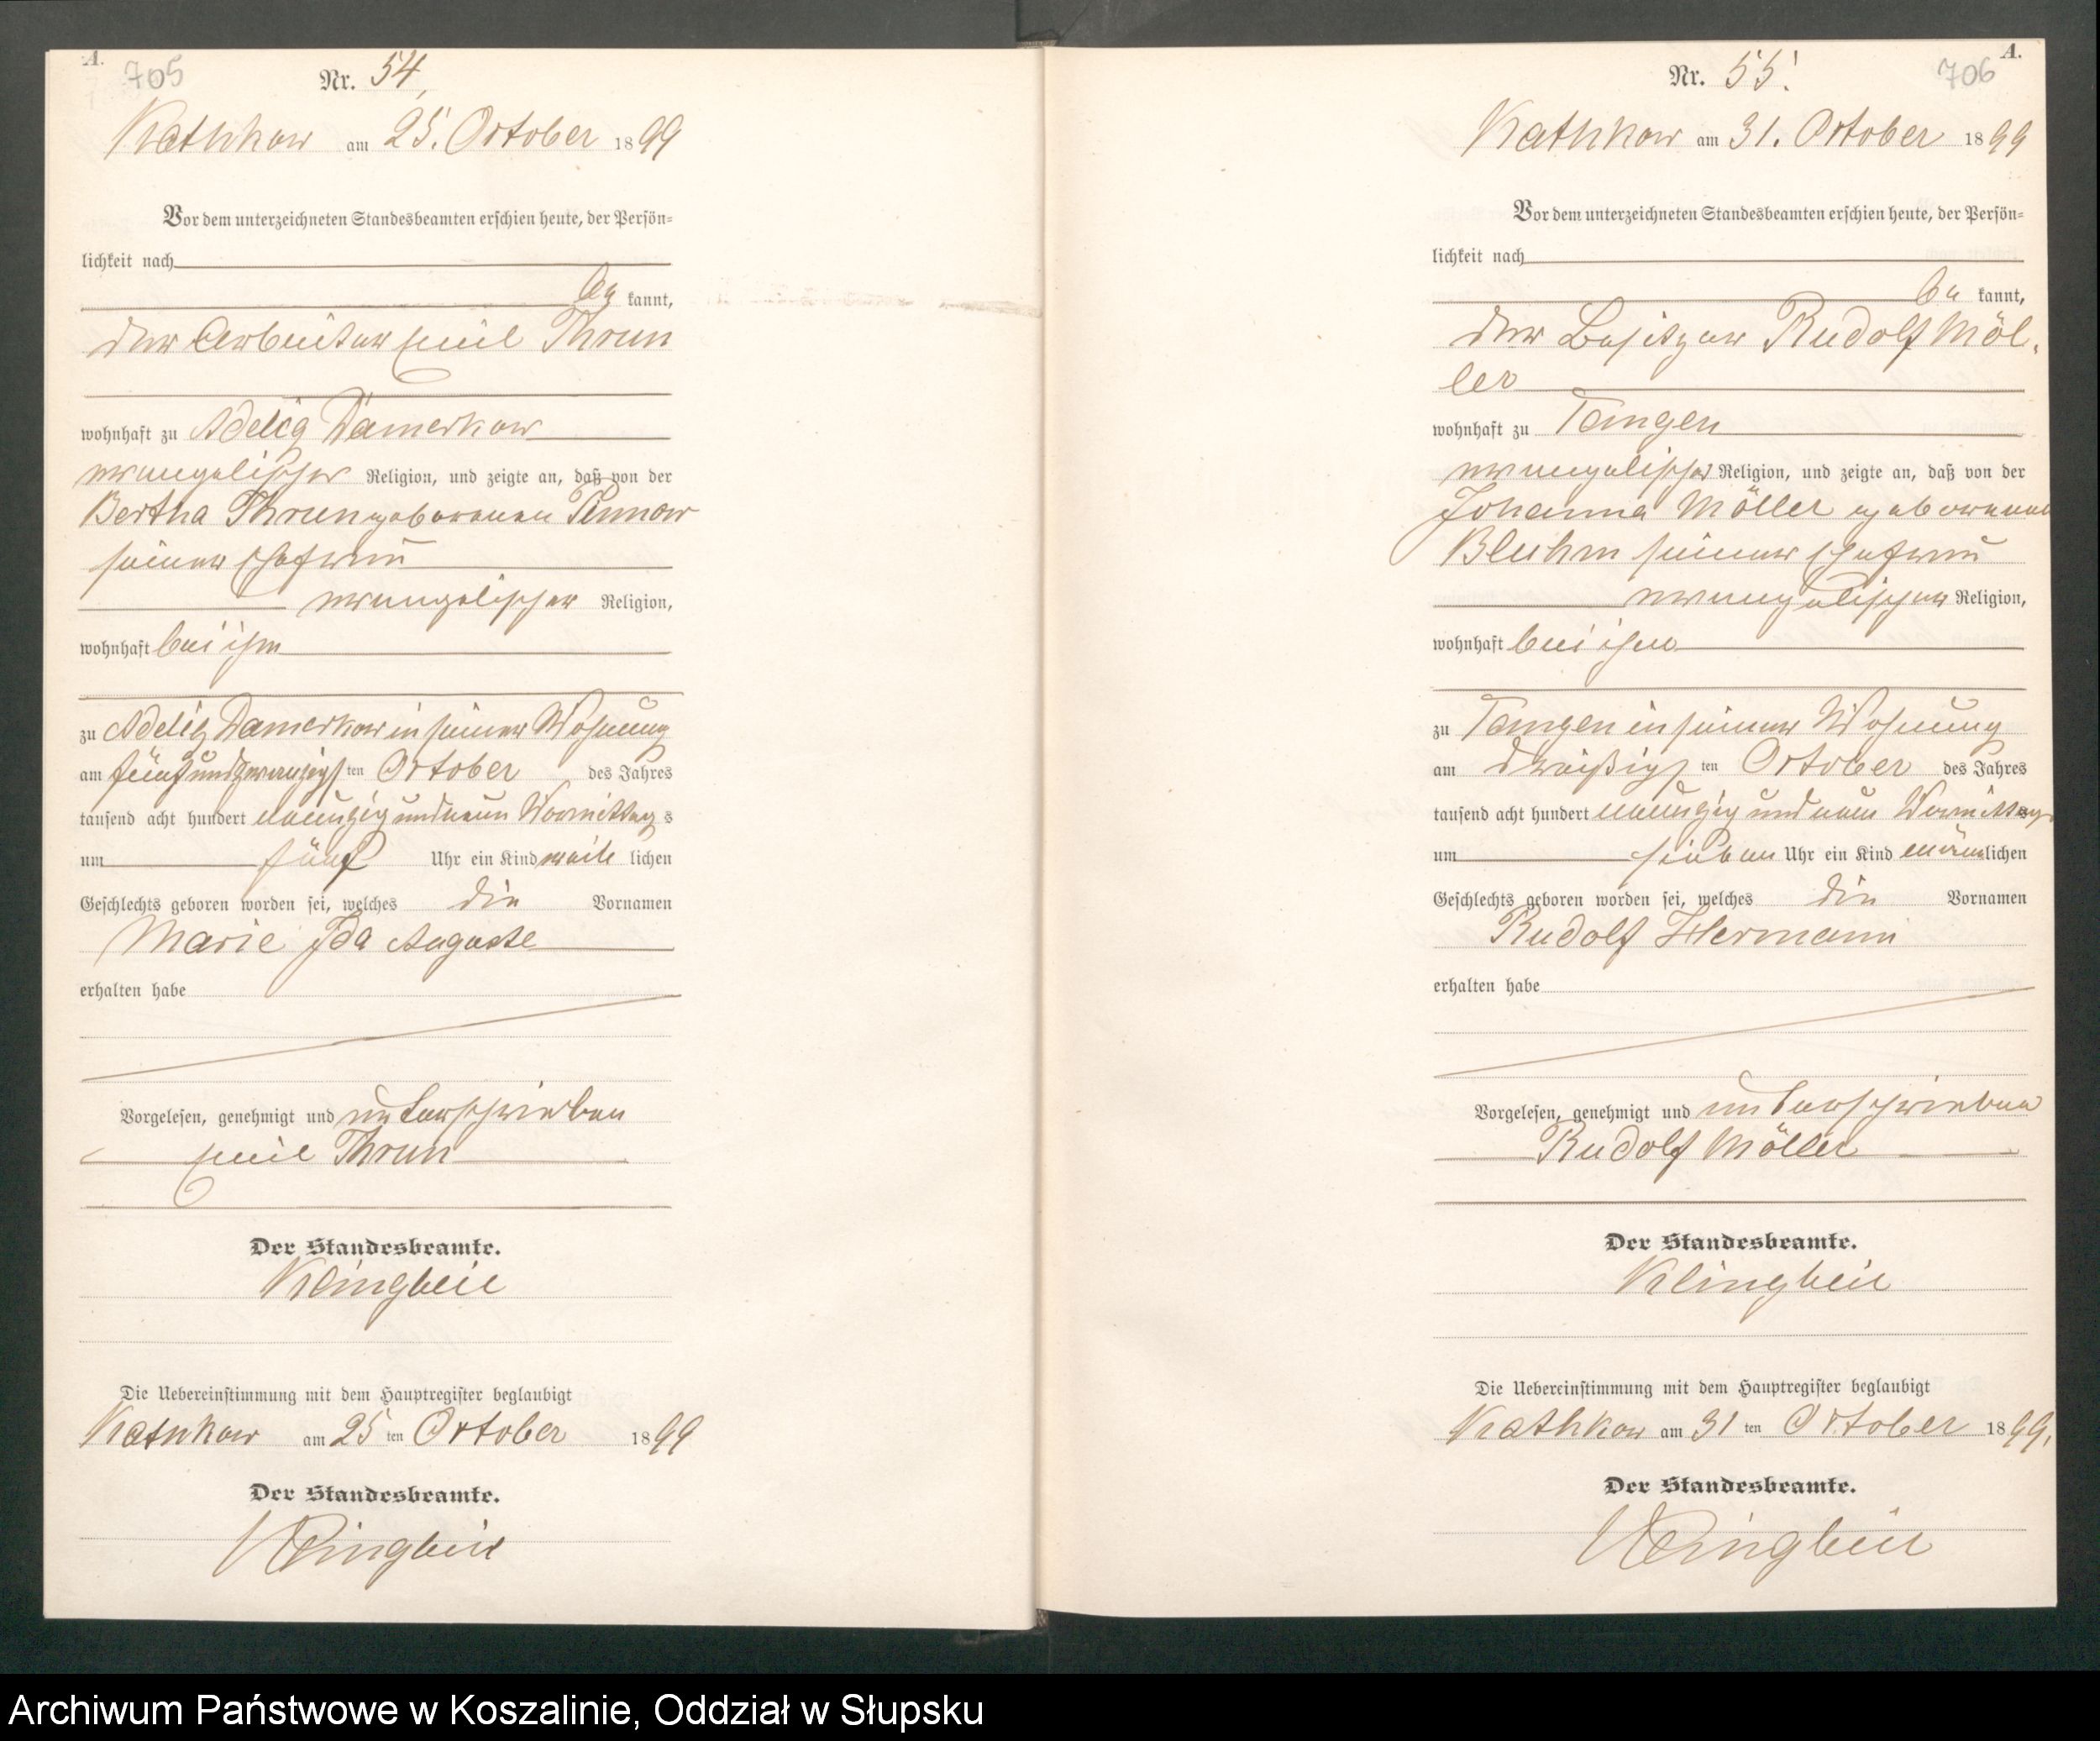 A.
705
Nr. 54,
Kathkow am 25. October 1899
Vor dem unterzeichneten Standesbeamten erschien heute, der Persön=
lichkeit nach
be kannt,
der Arbeiter Emil Thrun
wohnhaft zu Adelig Damerkow
evangelischer Religion, und zeigte an, daß von der
Bertha Thrun geborenen Pinnow
seiner Ehefrau
evangelischer Religion,
wohnhaft bei ihm
zu Adelig Damerkow in seiner Wohnung
am fünfundzwanzigsten October des Jahres
tausend acht hundert neunzig und neun Vormittags
um fünf Uhr ein Kind weiblichen
Geschlechts geboren worden sei, welches die Vornamen
Marie Ida Auguste
erhalten habe
Vorgelesen, genehmigt und unterschrieben
Emil Thrun
Der Standesbeamte.
Klingbeil
Die Uebereinstimmung mit dem Hauptregister beglaubigt
Kathkow am 25 ten October 1899
Der Standesbeamte.
Klingbeil
A.
706
Nr. 55.
Kathkow am 31. October 1899
Vor dem unterzeichneten Standesbeamten erschien heute, der Persön=
lichkeit nach
be kannt,
der Besitzer Rudolf Möl-
ler
wohnhaft zu Tangen
evangelischer Religion, und zeigte an, daß von der
Johanna Möller geborenen
Bluhm seiner Ehefrau
evangelischer Religion,
wohnhaft bei ihm
zu Tangen in seiner Wohnung
am dreißigsten October des Jahres
tausend acht hundert neunzig und neun Vormittags
um sieben Uhr ein Kind männlichen
Geschlechts geboren worden sei, welches die Vornamen
Rudolf Hermann
erhalten habe
Vorgelesen, genehmigt und unterschrieben
Rudolf Möller
Der Standesbeamte.
Klingbeil
Die Uebereinstimmung mit dem Hauptregister beglaubigt
Kathkow am 31 ten October 1899.
Der Standesbeamte.
Klingbeil
Archiwum Państwowe w Koszalinie, Oddział w Słupsku